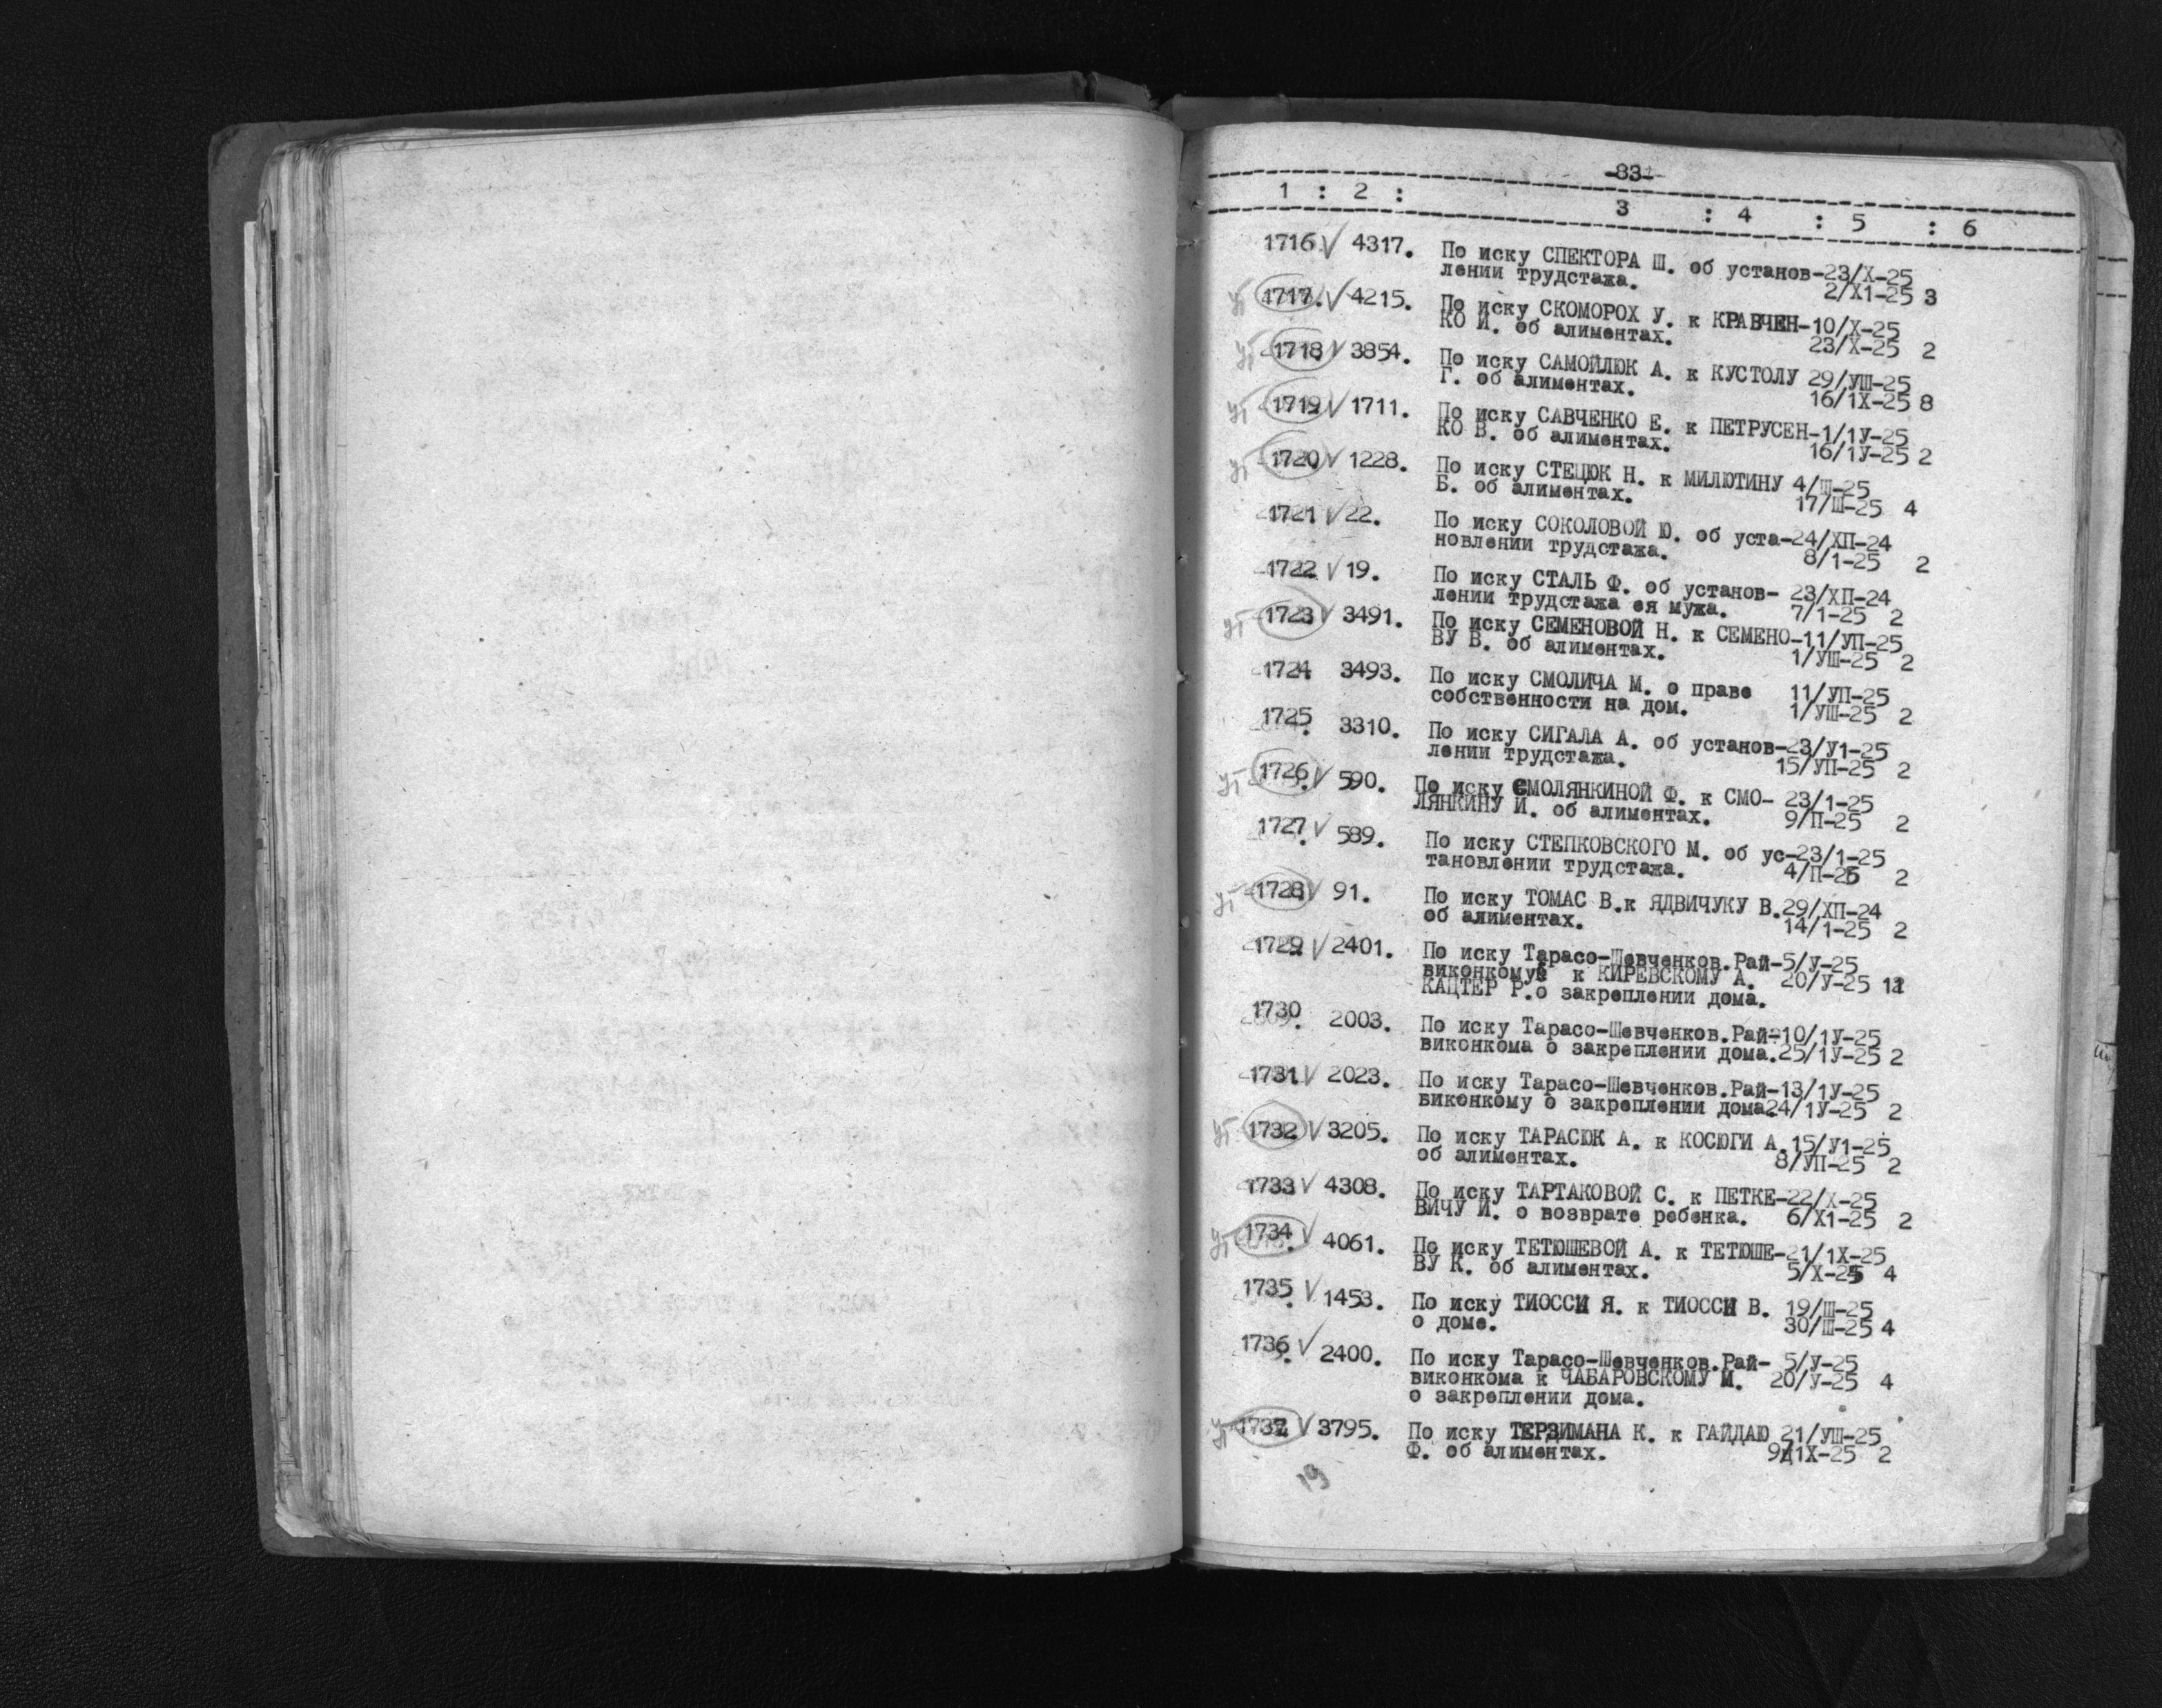 -83-
1 : 2 : 3 : 4 : 5 : 6
1716 √ 4317. По иску СПЕКТОРА Ш. об установ-23/Х-25
лении трудстажа. 2/Х1-25 3
ут 1717. √ 4215. По иску СКОМОРОХ У. к КРАВЧЕН-10/Х-25
КО И. об алиментах. 23/Х-25 2
ут 1718 √ 3854. По иску САМОЙЛЮК А. к КУСТОЛУ 29/УШ-25
Г. об алиментах. 16/1Х-25 8
ут 1719 √ 1711. По иску САВЧЕНКО Е. к ПЕТРУСЕН-1/1У-25
КО В. об алиментах. 16/1У-25 2
ут 1720 √ 1228. По иску СТЕЦЮК Н. к МИЛЮТИНУ 4/Ш-25
Б. об алиментах. 17/Ш-25 4
1721 √ 22. По иску СОКОЛОВОЙ Ю. об уста-24/ХП-24
новлении трудстажа. 8/1-25 2
1722 √ 19. По иску СТАЛЬ Ф. об установ- 23/ХП-24
лении трудстажа ея мужа. 7/1-25 2
ут 1723 √ 3491. По иску СЕМЕНОВОЙ Н. к СЕМЕНО-11/УП-25
ВУ В. об алиментах. 1/УШ-25 2
1724 3493. По иску СМОЛИЧА М. о праве 11/УП-25
собственности на дом. 1/УШ-25 2
1725. 3310. По иску СИГАЛА А. об установ-23/У1-25
лении трудстажа. 15/УП-25 2
ут 1726. √ 590. По иску СМОЛЯНКИНОЙ Ф. к СМО- 23/1-25
ЛЯНКИНУ И. об алиментах. 9/П-25 2
1727. √ 589. По иску СТЕПКОВСКОГО М. об ус-23/1-25
тановлении трудстажа. 4/П-25 2
ут 1728 √ 91. По иску ТОМАС В.к ЯДВИЧУКУ В.29/ХП-24
об алиментах. 14/1-25 2
1729 √ 2401. По иску Тарасо-Шевченков.Рай-5/У-25
виконкому к КИРЕВСКОМУ А. 20/У-25 11
КАЦТЕР Р.о закреплении дома.
1730. 2003. По иску Тарасо-Шевченков.Рай-10/1У-25
виконкома о закреплении дома.25/1У-25 2
1731 √ 2023. По иску Тарасо-Шевченков.Рай-13/1У-25
виконкому о закреплении дома24/1У-25 2
ут 1732 √ 3205. По иску ТАРАСЮК А. к КОСЮГИ А.15/У1-25
об алиментах. 8/УП-25 2
1733 √ 4308. По иску ТАРТАКОВОЙ С. к ПЕТКЕ-22/Х-25
ВИЧУ И. о возврате ребенка. 6/Х1-25 2
ут 1734. √ 4061. По иску ТЕТЮШЕВОЙ А. к ТЕТЮШЕ-21/1Х-25
ВУ К. об алиментах. 5/Х-25 4
1735. √ 1453. По иску ТИОССИ Я. к ТИОССИ В. 19/Ш-25
о доме. 30/Ш-25 4
1736. √ 2400. По иску Тарасо-Шевченков.Рай- 5/У-25
виконкома к ЧАБАРОВСКОМУ М. 20/У-25 4
о закреплении дома.
ут 1737 √ 3795. По иску ТЕРЗИМАНА К. к ГАЙДАЮ 21/УШ-25
Ф. об алиментах. 9/1Х-25 2
19